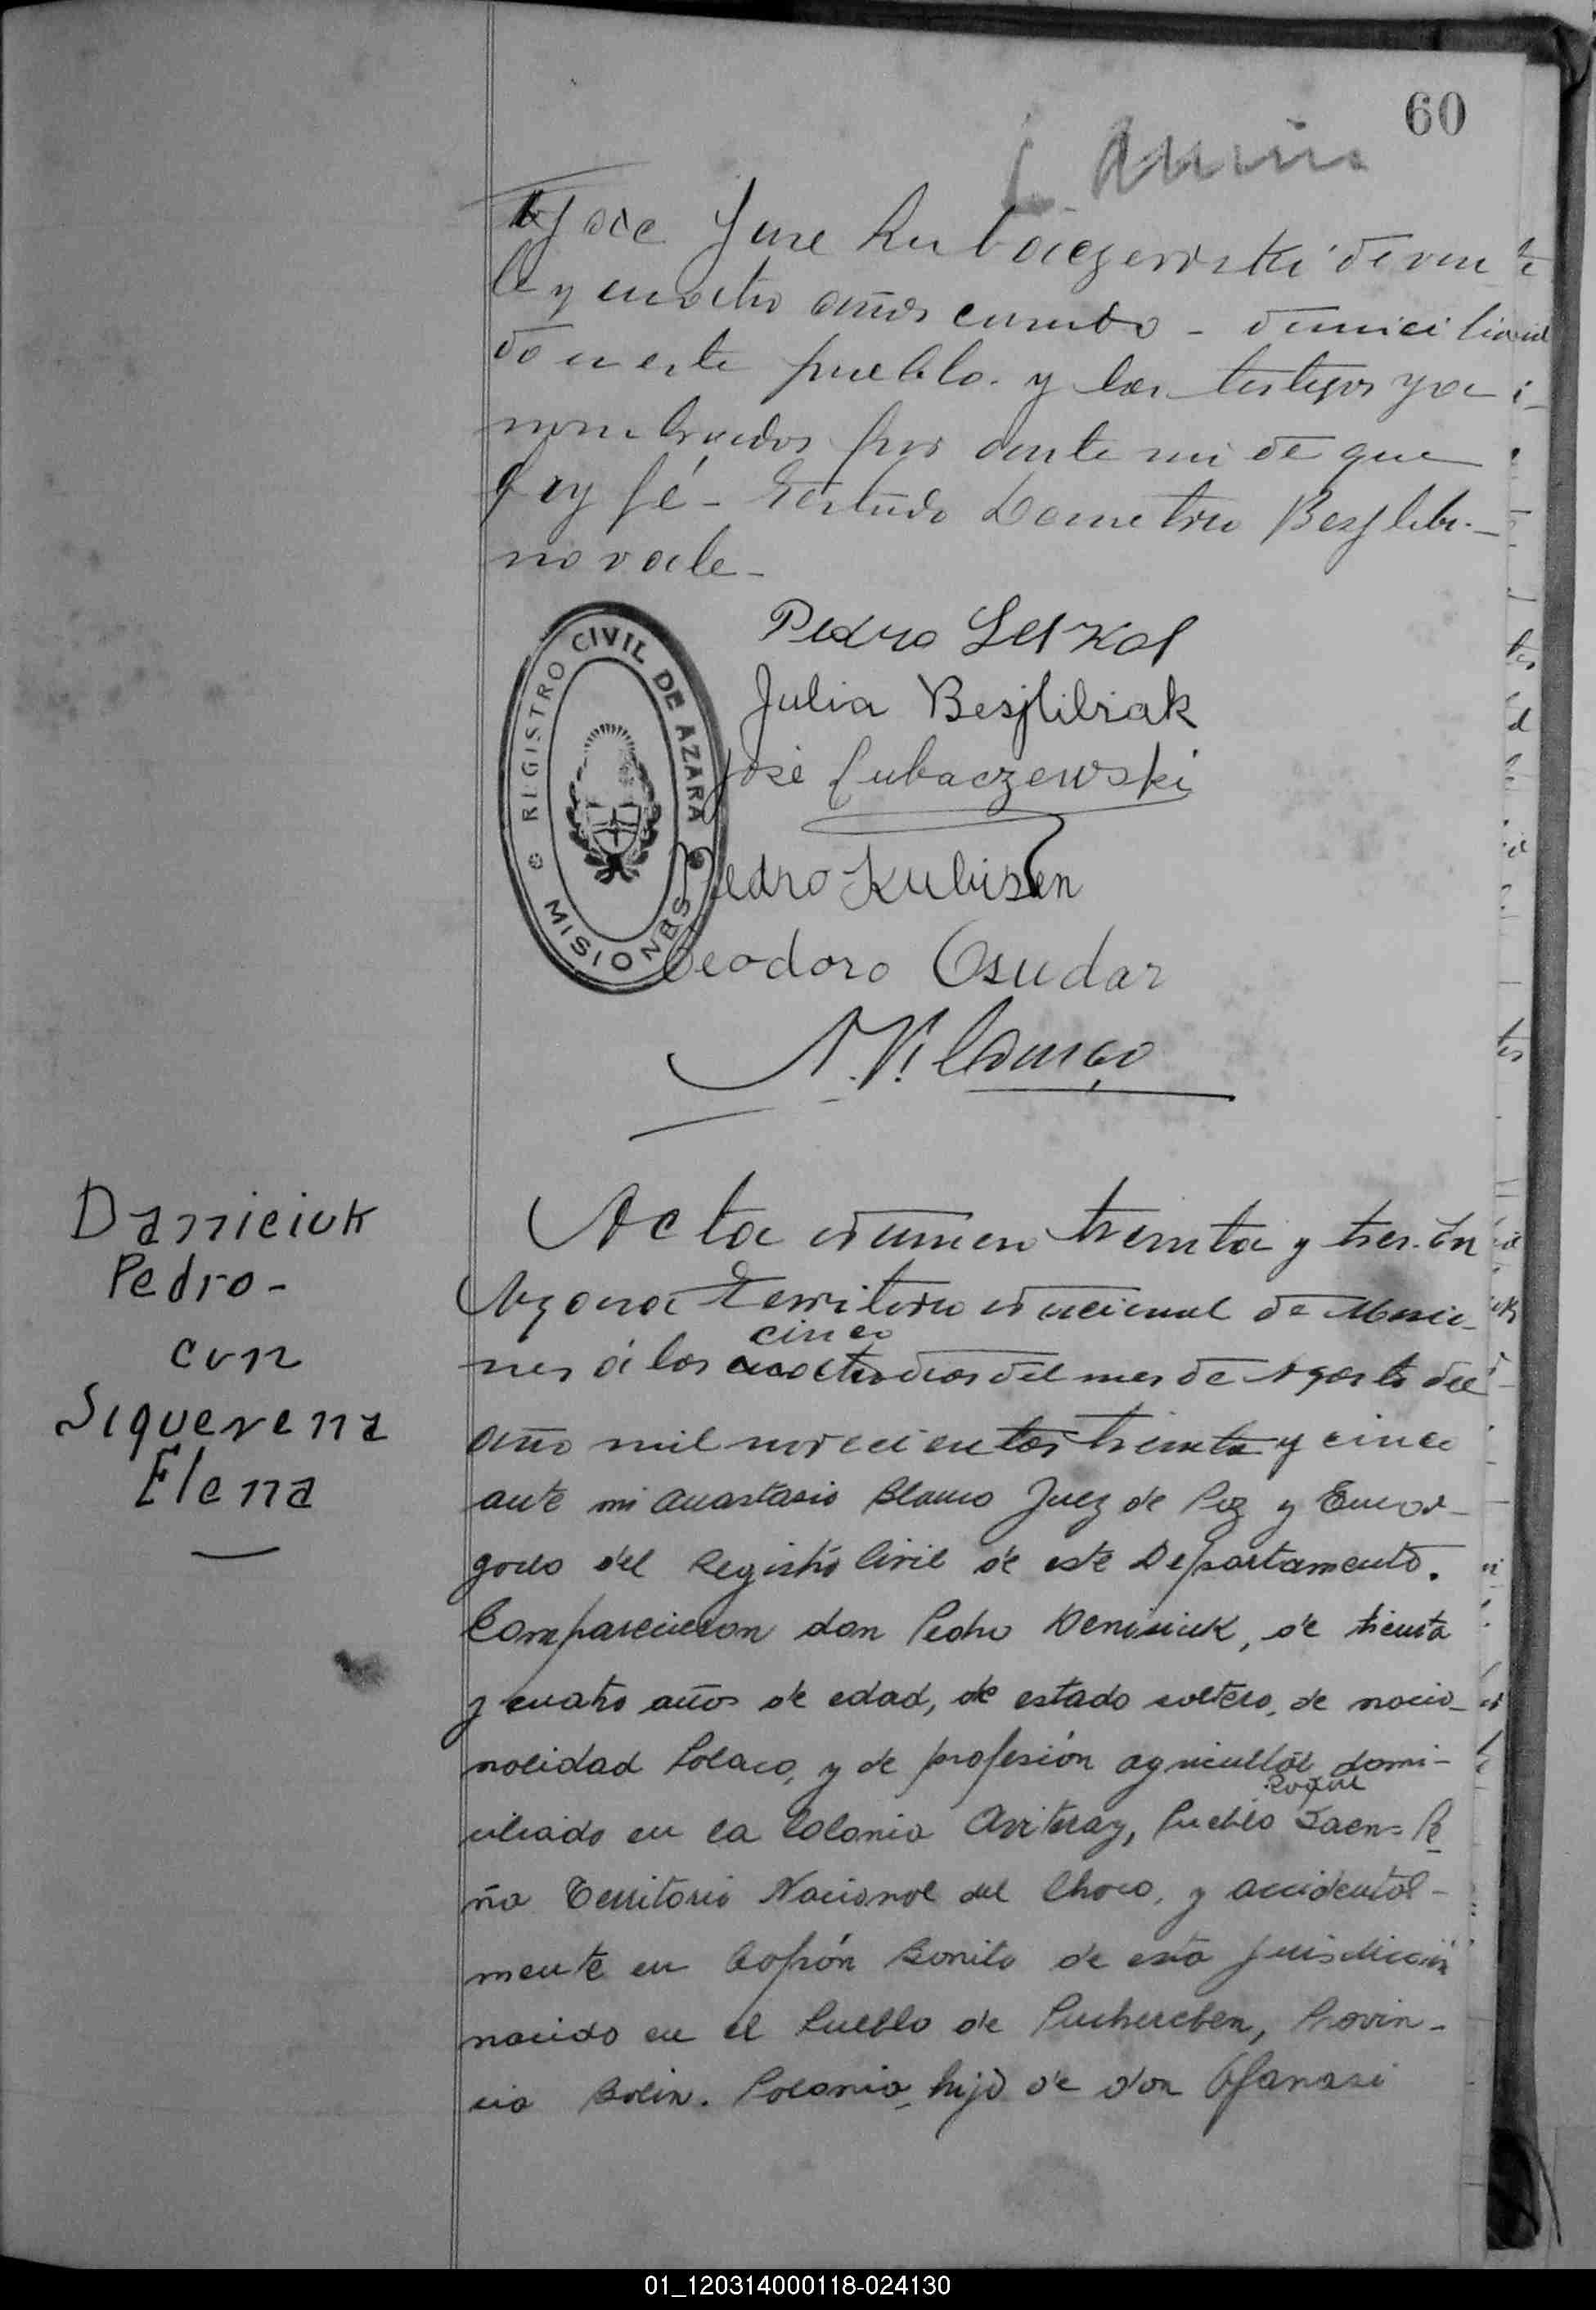 60
José Lubaczewski de vein
te y cuatro años casado - domicilia
do en este pueblo. y los testigos ya
nombrados por ante mi de que
doy fé - Testado Demetrio
no vale -
REGISTRO CIVIL DE AZARA
MISIONES
Pedro
Julia Besflibiak
José Lubaczewski
Pedro Kubiszen
Teodoro Osudar
A. Blanco
Danieiuk
Pedro -
con
Siquerena
Elena
Acta número treinta y tres. En
Azara Territorio nacional de Misio-
cinco
nes á los cuatro dias del mes de Agosto del
año mil novecientos treinta y cinco
ante mi Anastasio Blanco Juez de Paz y Encar-
gado del Registro Civil de este Departamento.
Comparecieron don Pedro Denisiuk, de treinta
y cuatro años de edad, de estado soltero, de nacio-
nalidad Polaco, y de profesión agricultor domi-
Roque
ciliado en la Colonia Aviteray, Pueblo Saen= Pe
ña Territorio Nacional del Chaco, y accidental-
mente en Capón Bonito de esta jurisdicción
nacido en el Pueblo de Puchereben, Provin-
cia Bolin. Polonia, hijo de don Afanasi
01_120314000118-024130